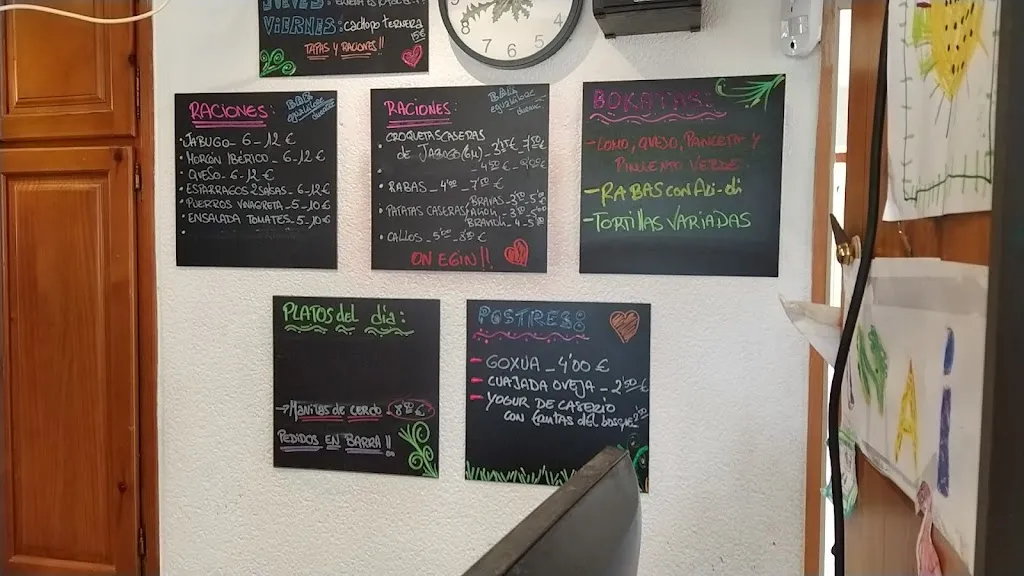 VIERNES: cachopo ternera
15€
TAPAS Y RACIONES!!
RACIONES:
BAR
• JABUGO - 6 - 12 €
• MORCÓN IBÉRICO - 6 - 12 €
• QUESO - 6 - 12 €
• ESPARRAGOS 2 SALSAS - 6 - 12 €
• PUERROS VINAGRETA - 5 - 10 €
• ENSALADA TOMATES - 5 - 10 €
RACIONES:
BAR
• CROQUETAS CASERAS
de JABUGO (6u)
• RABAS - 4'00 - 7'50 €
• PATATAS CASERAS
BRAVAS
ALIOLI
BRAVIOLI
• CALLOS
ON EGIN!!
BOKATAS:
- LOMO, QUESO, PANCETA Y
PIMIENTO VERDE
- RABAS CON ALI-OLI
- TORTILLAS VARIADAS
PLATOS del día:
→ Manitas de cerdo
PEDIDOS EN BARRA!!
POSTRES:
- GOXUA - 4'00 €
- CUAJADA OVEJA - 2'50 €
- YOGUR DE CASERIO
CON frutas del bosque
8
7
6
5
4
A
i